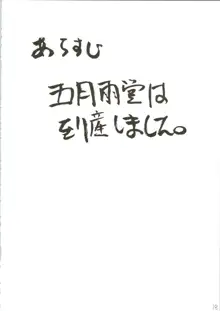 あらすじ
五月雨堂は
倒産しました。